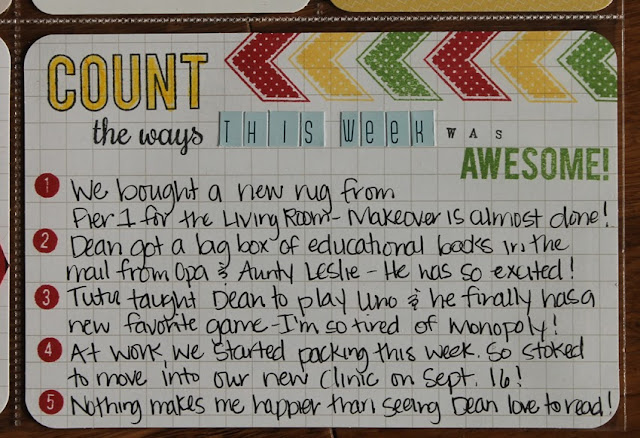 COUNT
the ways THIS WEEK WAS
AWESOME!
1 We bought a new rug from
Pier 1 for the Living Room - Makeover is almost done!
2 Dean got a big box of educational books in the
mail from Opa & Aunty Leslie - He was so excited!
3 Tutu taught Dean to play Uno & he finally has a
new favorite game - I'm so tired of Monopoly!
4 At work, we started packing this week. So stoked
to move into our new clinic on Sept. 16!
5 Nothing makes me happier than seeing Dean love to read!